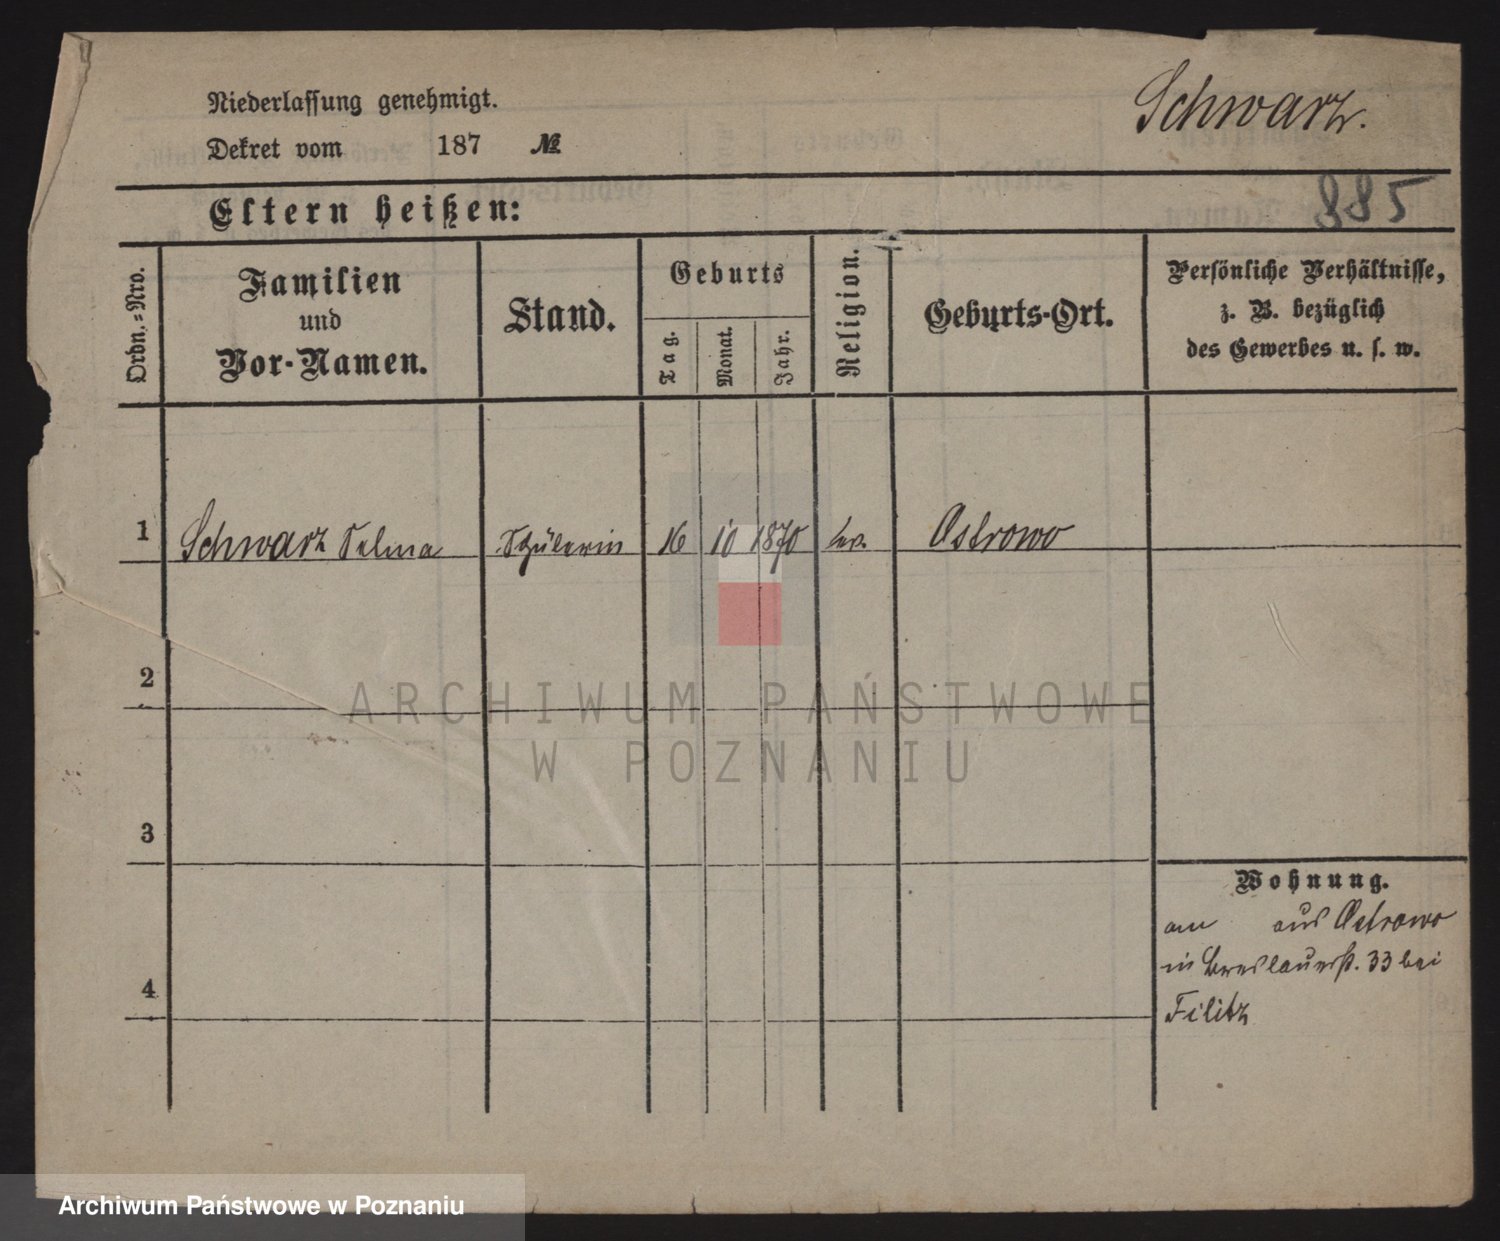 Niederlassung genehmigt.
Schwarz.
Dekret vom 187 №
885
Eltern heißen:
Ordn.-Nro.
Familien
und
Vor-Namen.
Stand.
Geburts
Tag.
Monat.
Jahr.
Religion.
Geburts-Ort.
Persönliche Verhältnisse,
z. B. bezüglich
des Gewerbes u. s. w.
1 Schwarz Selma Schülerin 16 10 1870 Ostrowo
2
3
4
Wohnung.
am aus Ostrowo
in Breslauerst. 33 bei
Filitz
ARCHIWUM PAŃSTWOWE
W POZNANIU
Archiwum Państwowe w Poznaniu